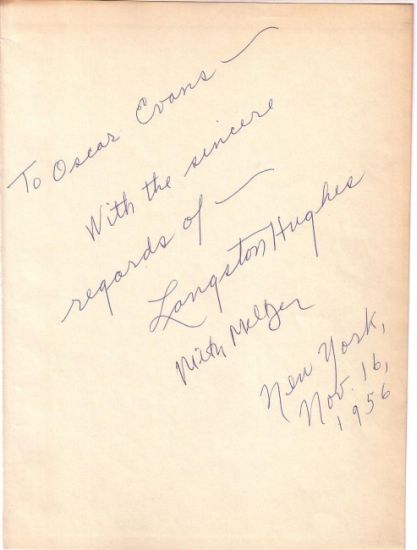 To Oscar Evans —
With the sincere
regards of —
Langston Hughes
Milton Meltzer
New York,
Nov. 16,
1956